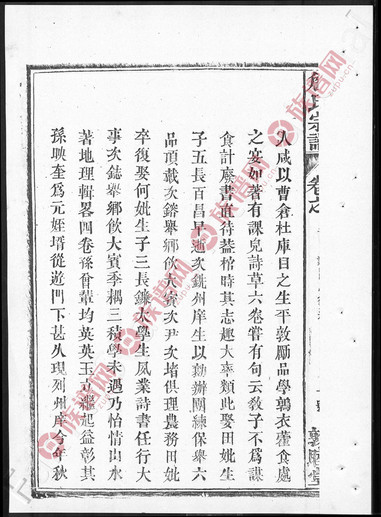 人咸以曹倉杜庫目之生平敦勵品學鶉衣蘆食處
之宴如著有課兒詩草六卷嘗有句云敎子不為謀
食計藏書直待蓋棺時其志趣大率類此娶田妣生
子五長百昌早逝次銑州庠生以勦辦團練保舉六
品頂戴次鎔舉鄉飲大賓次尹次堵俱理農務田妣
卒復娶何妣生子三長鐮太學生夙業詩書任行大
事次誌舉鄉飲大賓季耦三積學未遇乃怡情山水
著地理輯畧四卷孫曾輩均英英玉立繼起益彰其
孫暎奎爲元姪壻從遊門下甚久現列州庠今年秋
氏宗譜
卷之
族譜网
zupu.cn